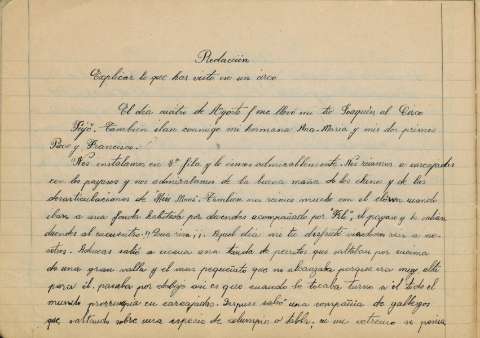 Redacción
Explicar lo que has visto en un circo
El día cuatro de Agosto me llevó mi tío Joaquín al Circo
También iban conmigo mi hermana Ana-María y mis dos primos
Paco y Francisco.
Nos instalamos en 4ª fila y lo vimos admirablemente. Nos reíamos a carcajadas
con los payasos y nos admirábamos de la buena maña de los y de las
desarticulaciones de Miss También nos reímos mucho con el clown cuando
iban a una fonda por duendes acompañado por el payaso y le salían
duendes al encuentro. ¡¡ Que risa!!. Aquel día me disfruté
Entonces salió a escena una tanda de perritos que saltaban por encima
de una gran valla y el mas pequeñito que no alcanzaba porque era muy alta
para él, pasaba por debajo así es que cuando le tocaba turno a él todo el
mundo prorrumpía en carcajadas. Despues salió una compañía de gallegos
que saltando sobre una especie de columpio o tabla, en un extremo se ponía